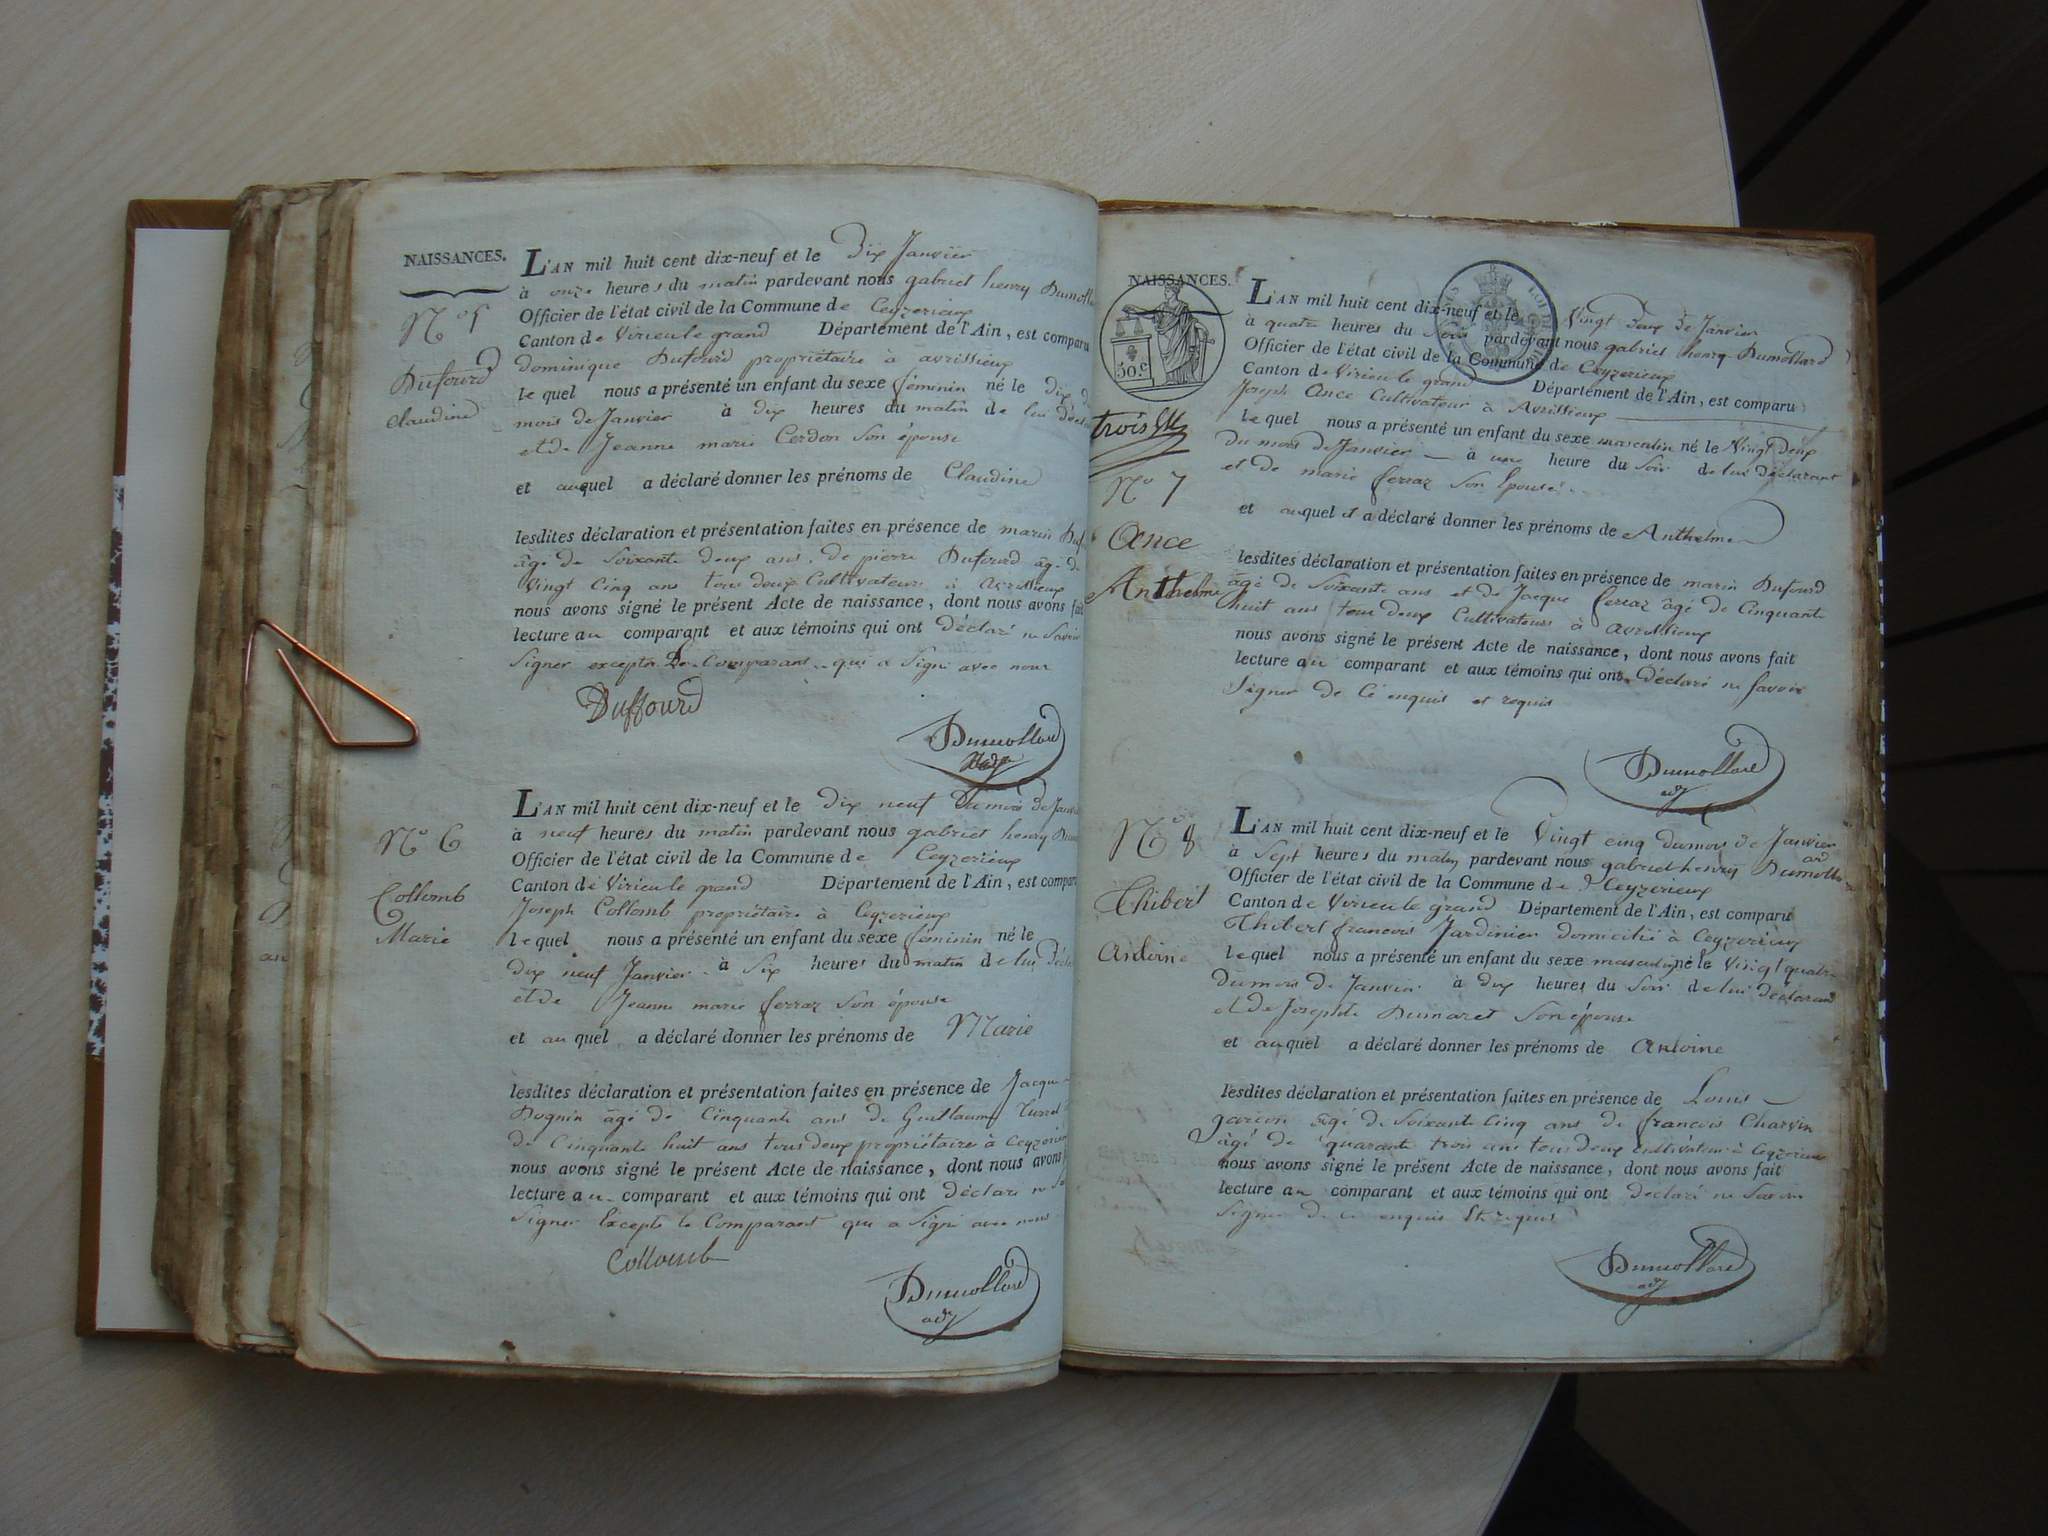 NAISSANCES.
N.º 5
Dufourd
Claudine
L'AN mil huit cent dix-neuf et le Dix Janvier
à onze heures du matin pardevant nous gabriel henry
Officier de l'état civil de la Commune de Ceyzerieux
Canton de Virieu le grand Département de l'Ain, est comparu
dominique Dufourd propriétaire à avrissieux
le quel nous a présenté un enfant du sexe féminin né le dix
mois de Janvier à dix heures du matin de lui
et de Jeanne marie Cerdon son épouse
et auquel a déclaré donner les prénoms de Claudine
lesdites déclaration et présentation faites en présence de marin
âgé de Soixante deux ans, de pierre Dufourd âgé de
Vingt Cinq ans tous deux Cultivateurs à avrissieux
nous avons signé le présent Acte de naissance, dont nous avons fait
lecture au comparant et aux témoins qui ont Déclaré ne Savoir
Signer excepté Le Comparant qui a Signé avec nous
Duffourd
Dumollard
N.º 6
Collomb
Marie
L'AN mil huit cent dix-neuf et le dix neuf Du mois de
à neuf heures du matin pardevant nous gabriel henry
Officier de l'état civil de la Commune de Ceyzerieux
Canton de Virieu le grand Département de l'Ain, est comparu
Joseph Collomb propriétaire à Ceyzerieux
le quel nous a présenté un enfant du sexe féminin né le
dix neuf Janvier à Six heures du matin de lui
et de Jeanne marie ferraz Son épouse
et au quel a déclaré donner les prénoms de Marie
lesdites déclaration et présentation faites en présence de
Dognin âgé de Cinquante ans de Guillaume
de Cinquante huit ans tous deux propriétaires à
nous avons signé le présent Acte de naissance, dont nous avons
lecture au comparant et aux témoins qui ont Déclaré ne
Signer Excepté le Comparant qui a Signé avec nous
Collomb
Dumollard
adj
NAISSANCES.
30.c
trois
N.º 7
Ance
Anthelme
L'AN mil huit cent dix-neuf et le Vingt Deux De Janvier
à quatre heures du Soir pardevant nous gabriel henry Dumollard
Officier de l'état civil de la Commune de Ceyzerieux
Canton de Virieu le grand Département de l'Ain, est comparu
Joseph Ance Cultivateur à Avrissieux
le quel nous a présenté un enfant du sexe masculin né le Vingt Deux
du mois de Janvier à une heure du Soir de lui Déclarant
et de marie ferraz Son Epouse
et auquel il a déclaré donner les prénoms de Anthelme
lesdites déclaration et présentation faites en présence de marin Dufourd
âgé de Soixante ans et de Jacque ferraz âgé de Cinquante
huit ans tous deux Cultivateurs à avrissieux
nous avons signé le présent Acte de naissance, dont nous avons fait
lecture au comparant et aux témoins qui ont Déclaré ne Savoir
Signer de Ce enquis et requis
Dumollard
adj
N.º 8
Thibert
Antoine
L'AN mil huit cent dix-neuf et le Vingt cinq du mois de Janvier
à Sept heures du matin pardevant nous gabriel henry Dumollard
Officier de l'état civil de la Commune de Ceyzerieux
Canton de Virieu le grand Département de l'Ain, est comparu
Thibert francois Jardinier domicilié à Ceyzerieux
le quel nous a présenté un enfant du sexe masculin né le Vingt quatre
du mois de Janvier à dix heures du Soir de lui déclarant
et de Josephte Dumaret Son épouse
et auquel a déclaré donner les prénoms de Antoine
lesdites déclaration et présentation faites en présence de Louis
garcon âgé de Soixante Cinq ans de francois Charvin
âgé de quarante trois ans tous deux cultivateurs à Ceyzerieux
nous avons signé le présent Acte de naissance, dont nous avons fait
lecture au comparant et aux témoins qui ont Déclaré ne Savoir
Signer de ce enquis et requis
Dumollard
adj